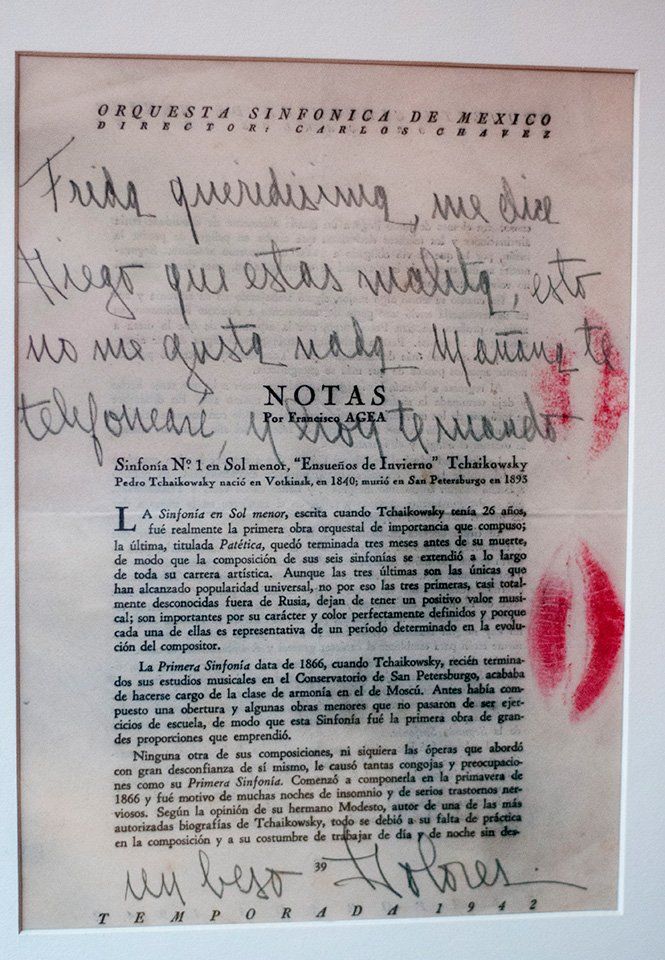 ORQUESTA SINFONICA DE MEXICO
DIRECTOR: CARLOS CHAVEZ
Frida queridisima, me dice
Diego que estas malita, esto
no me gusta nada. Mañana te
NOTAS
Por Francisco AGEA
telefonearé, y hoy te mando
Sinfonía Nº 1 en Sol menor, "Ensueños de Invierno" Tchaikowsky
Pedro Tchaikowsky nació en Votkinsk, en 1840; murió en San Petersburgo en 1893
LA Sinfonía en Sol menor, escrita cuando Tchaikowsky tenía 26 años,
fué realmente la primera obra orquestal de importancia que compuso;
la última, titulada Patética, quedó terminada tres meses antes de su muerte,
de modo que la composición de sus seis sinfonías se extendió a lo largo
de toda su carrera artística. Aunque las tres últimas son las únicas que
han alcanzado popularidad universal, no por eso las tres primeras, casi total-
mente desconocidas fuera de Rusia, dejan de tener un positivo valor musi-
cal; son importantes por su carácter y color perfectamente definidos y porque
cada una de ellas es representativa de un período determinado en la evolu-
ción del compositor.
La Primera Sinfonía data de 1866, cuando Tchaikowsky, recién termina-
dos sus estudios musicales en el Conservatorio de San Petersburgo, acababa
de hacerse cargo de la clase de armonía en el de Moscú. Antes había com-
puesto una obertura y algunas obras menores que no pasaron de ser ejer-
cicios de escuela, de modo que esta Sinfonía fué la primera obra de gran-
des proporciones que emprendió.
Ninguna otra de sus composiciones, ni siquiera las óperas que abordó
con gran desconfianza de sí mismo, le causó tantas congojas y preocupacio-
nes como su Primera Sinfonía. Comenzó a componerla en la primavera de
1866 y fué motivo de muchas noches de insomnio y de serios trastornos ner-
viosos. Según la opinión de su hermano Modesto, autor de una de las más
autorizadas biografías de Tchaikowsky, todo se debió a su falta de práctica
en la composición y a su costumbre de trabajar de día y de noche sin des-
39
un beso Dolores
TEMPORADA 1942